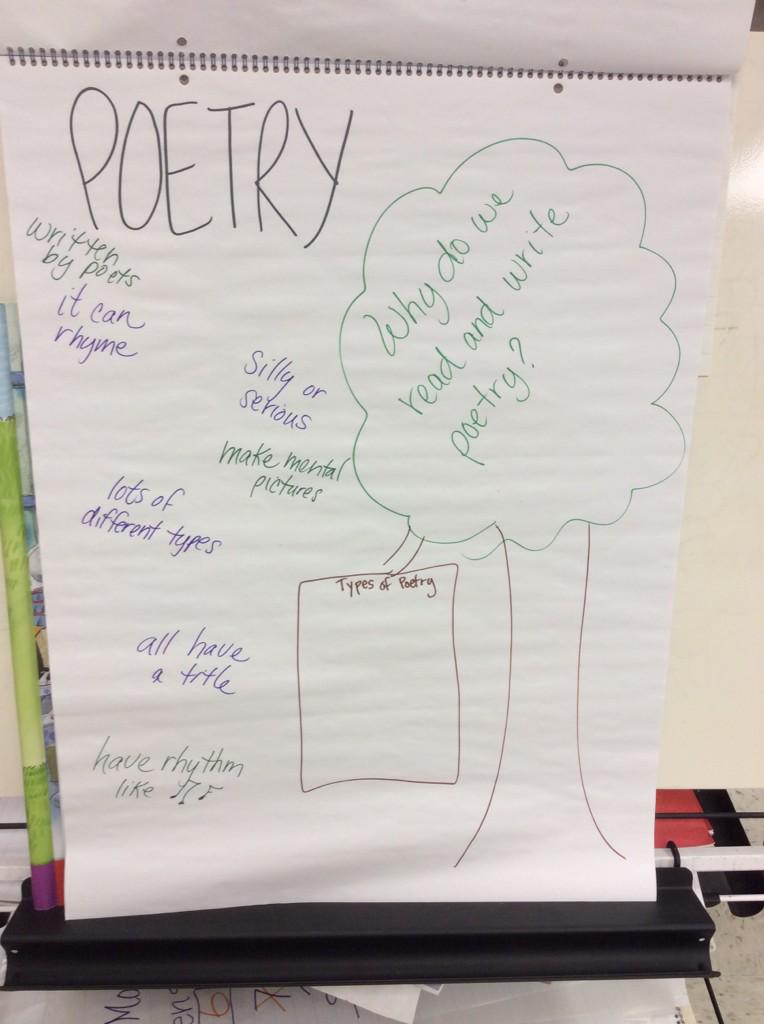 POETRY
written
by poets
it can
rhyme
Silly or
serious
make mental
pictures
lots of
different types
all have
a title
have rhythm
like
Why do we
read and write
poetry?
Types of Poetry